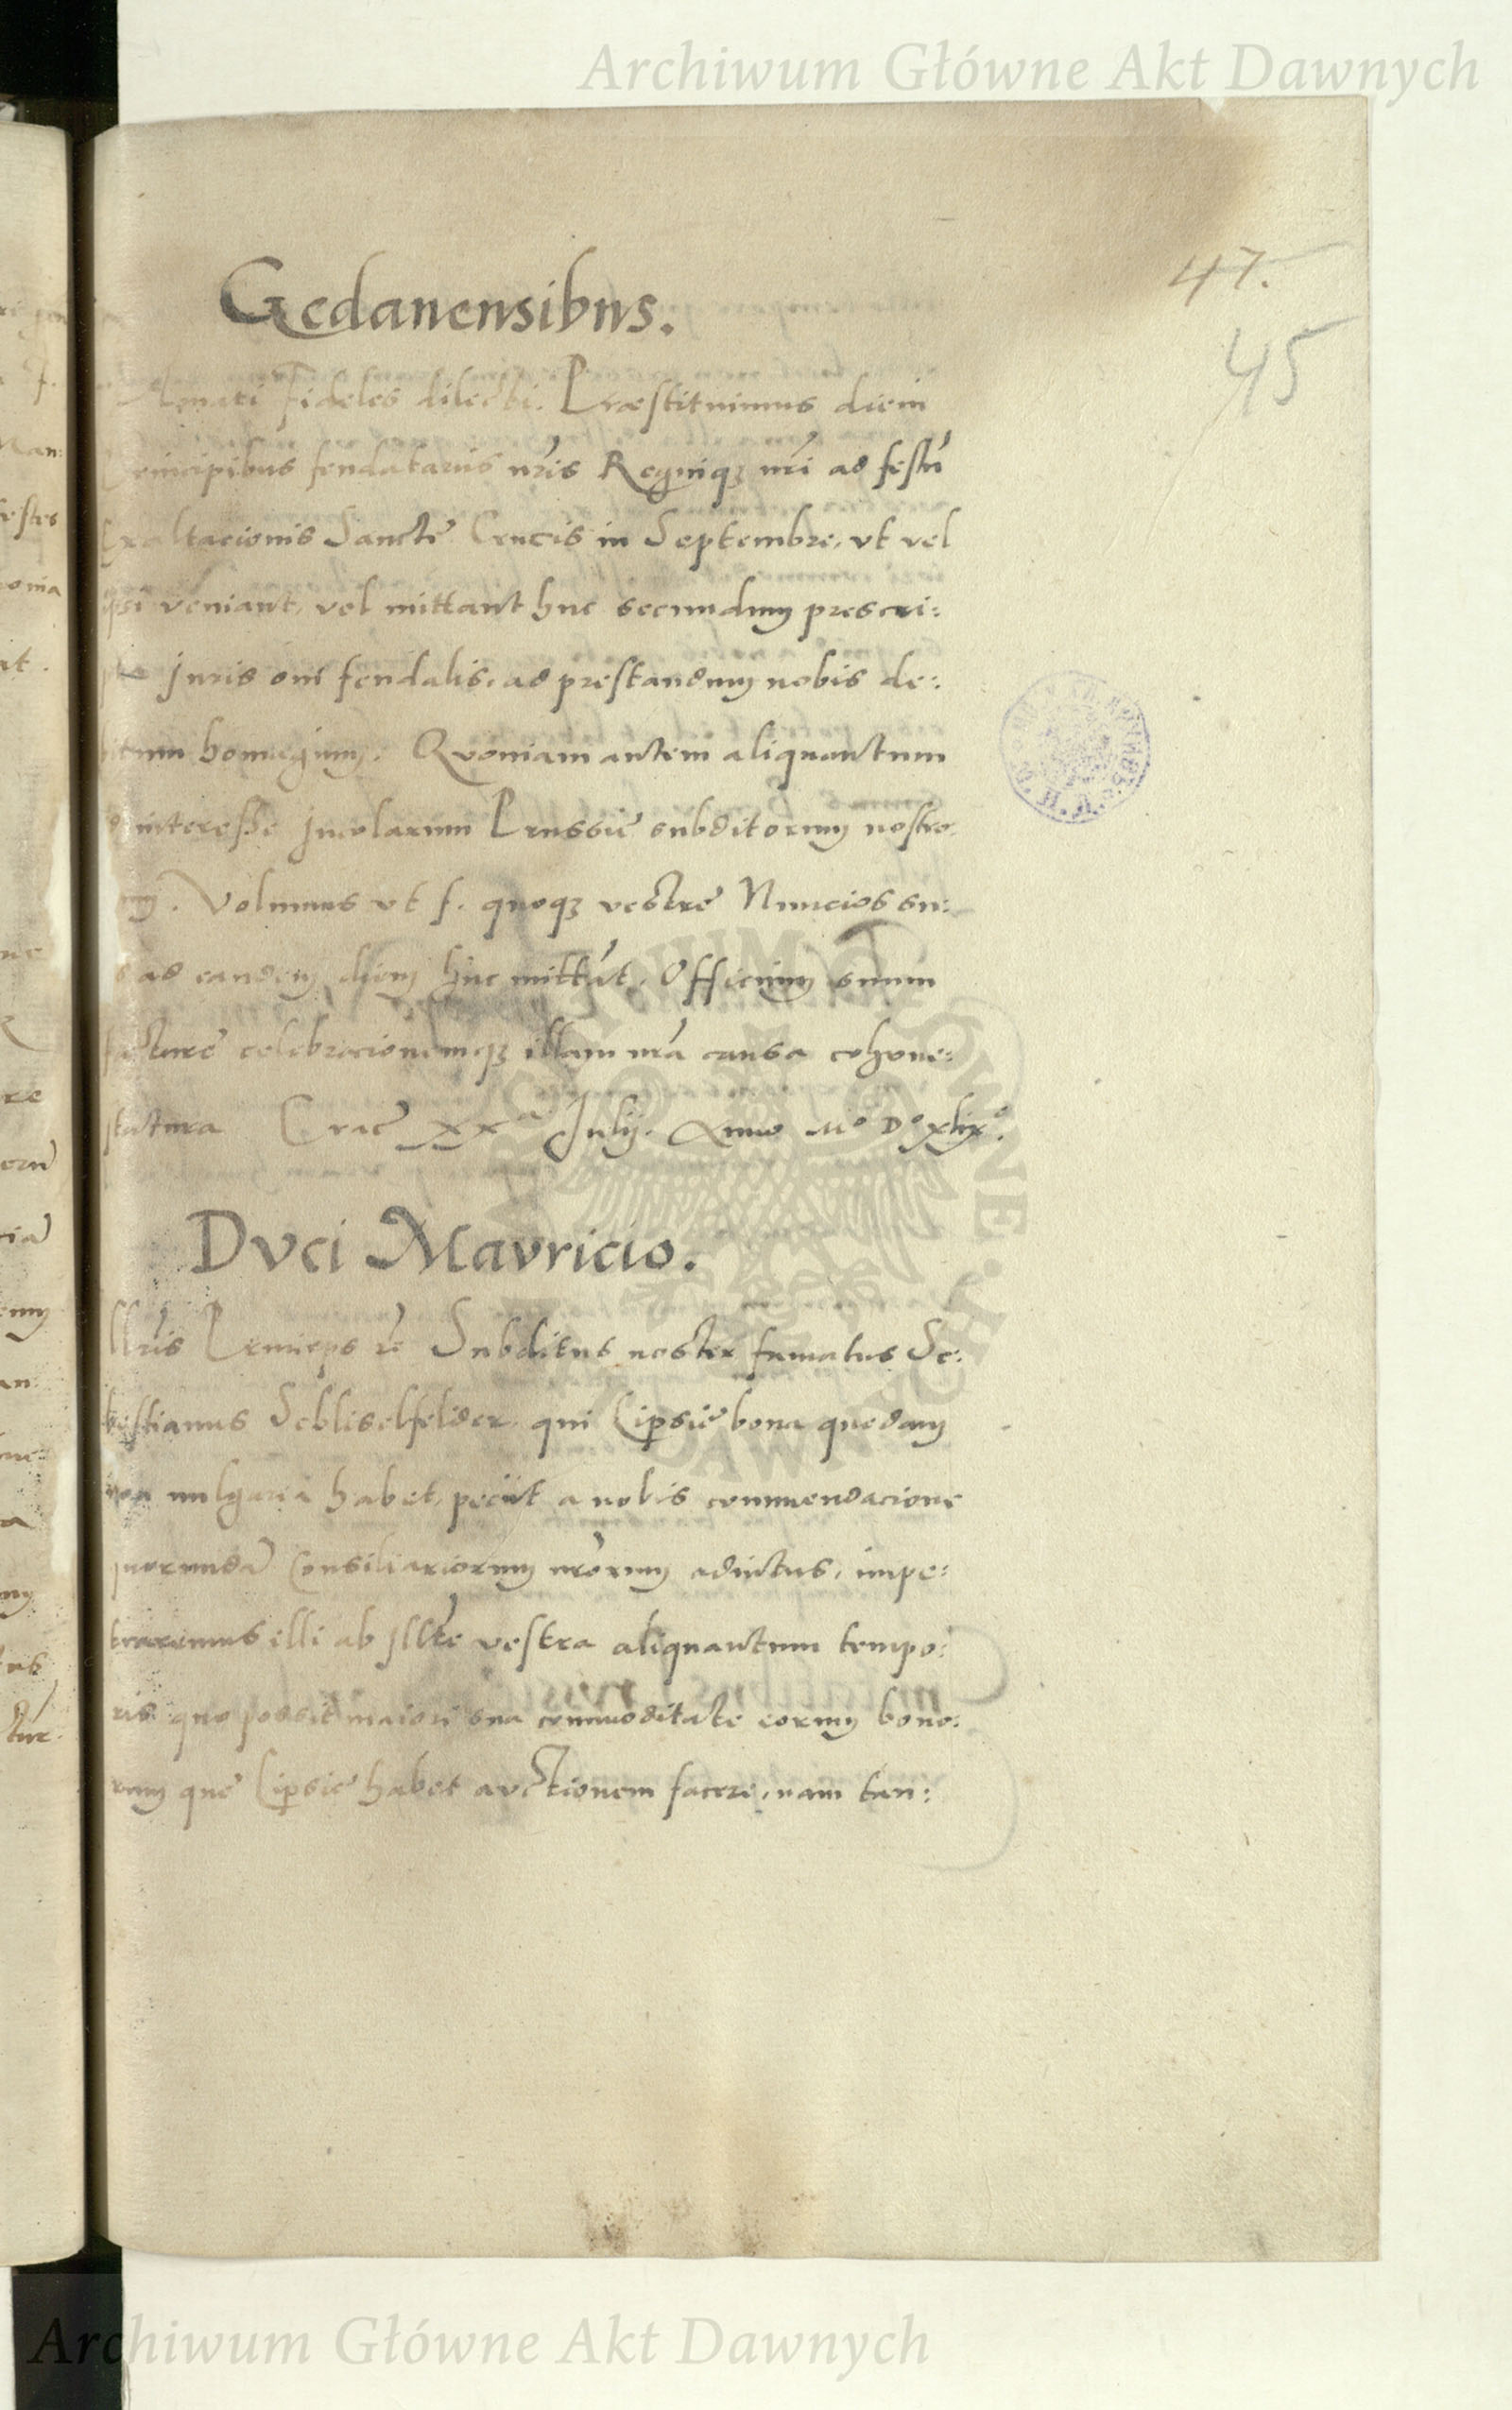 Archiwum Główne Akt Dawnych
47.
45
Gedanensibus.
Fideles dilecti. Præstituimus diem
principibus feudatariis nr̃is Regniqꝫ nr̃i ad festũ
Exaltacionis Sanctę Crucis in Septembre, vt vel
ipsi veniant, vel mittant huc secundum prescri:
Juris feudalis, ad prestandum nobis de:
bitum homagium. Qvoniam autem aliquantum
interesse Jncolarum Prussię subditorum nostro:
Volumus vt f. quoqꝫ vestrę Nuncios su:
ad eandem diem huc mittãt, Officium suum
facturę celebracionemqꝫ illam nr̃a causa cohone:
statura Crac̃ XXᵃ Julij. Anno Mᵒ Dᵒ xlixᵒ.
Dvci Mavricio.
Illr̃is Princeps Subditus noster famatus Se:
bestianus qui Lipsię bona quedam
non uulgaria habet, peciit a nobis commendacione
quorundã Consiliariorum nr̃orum adiutus, impe:
traremus illi ab Jllr̃e vestra aliquantum tempo:
ris quo possit maiori sua commoditate eorum bono:
rum quę Lipsię habet avctionem facere, nam tan:
Archiwum Główne Akt Dawnych